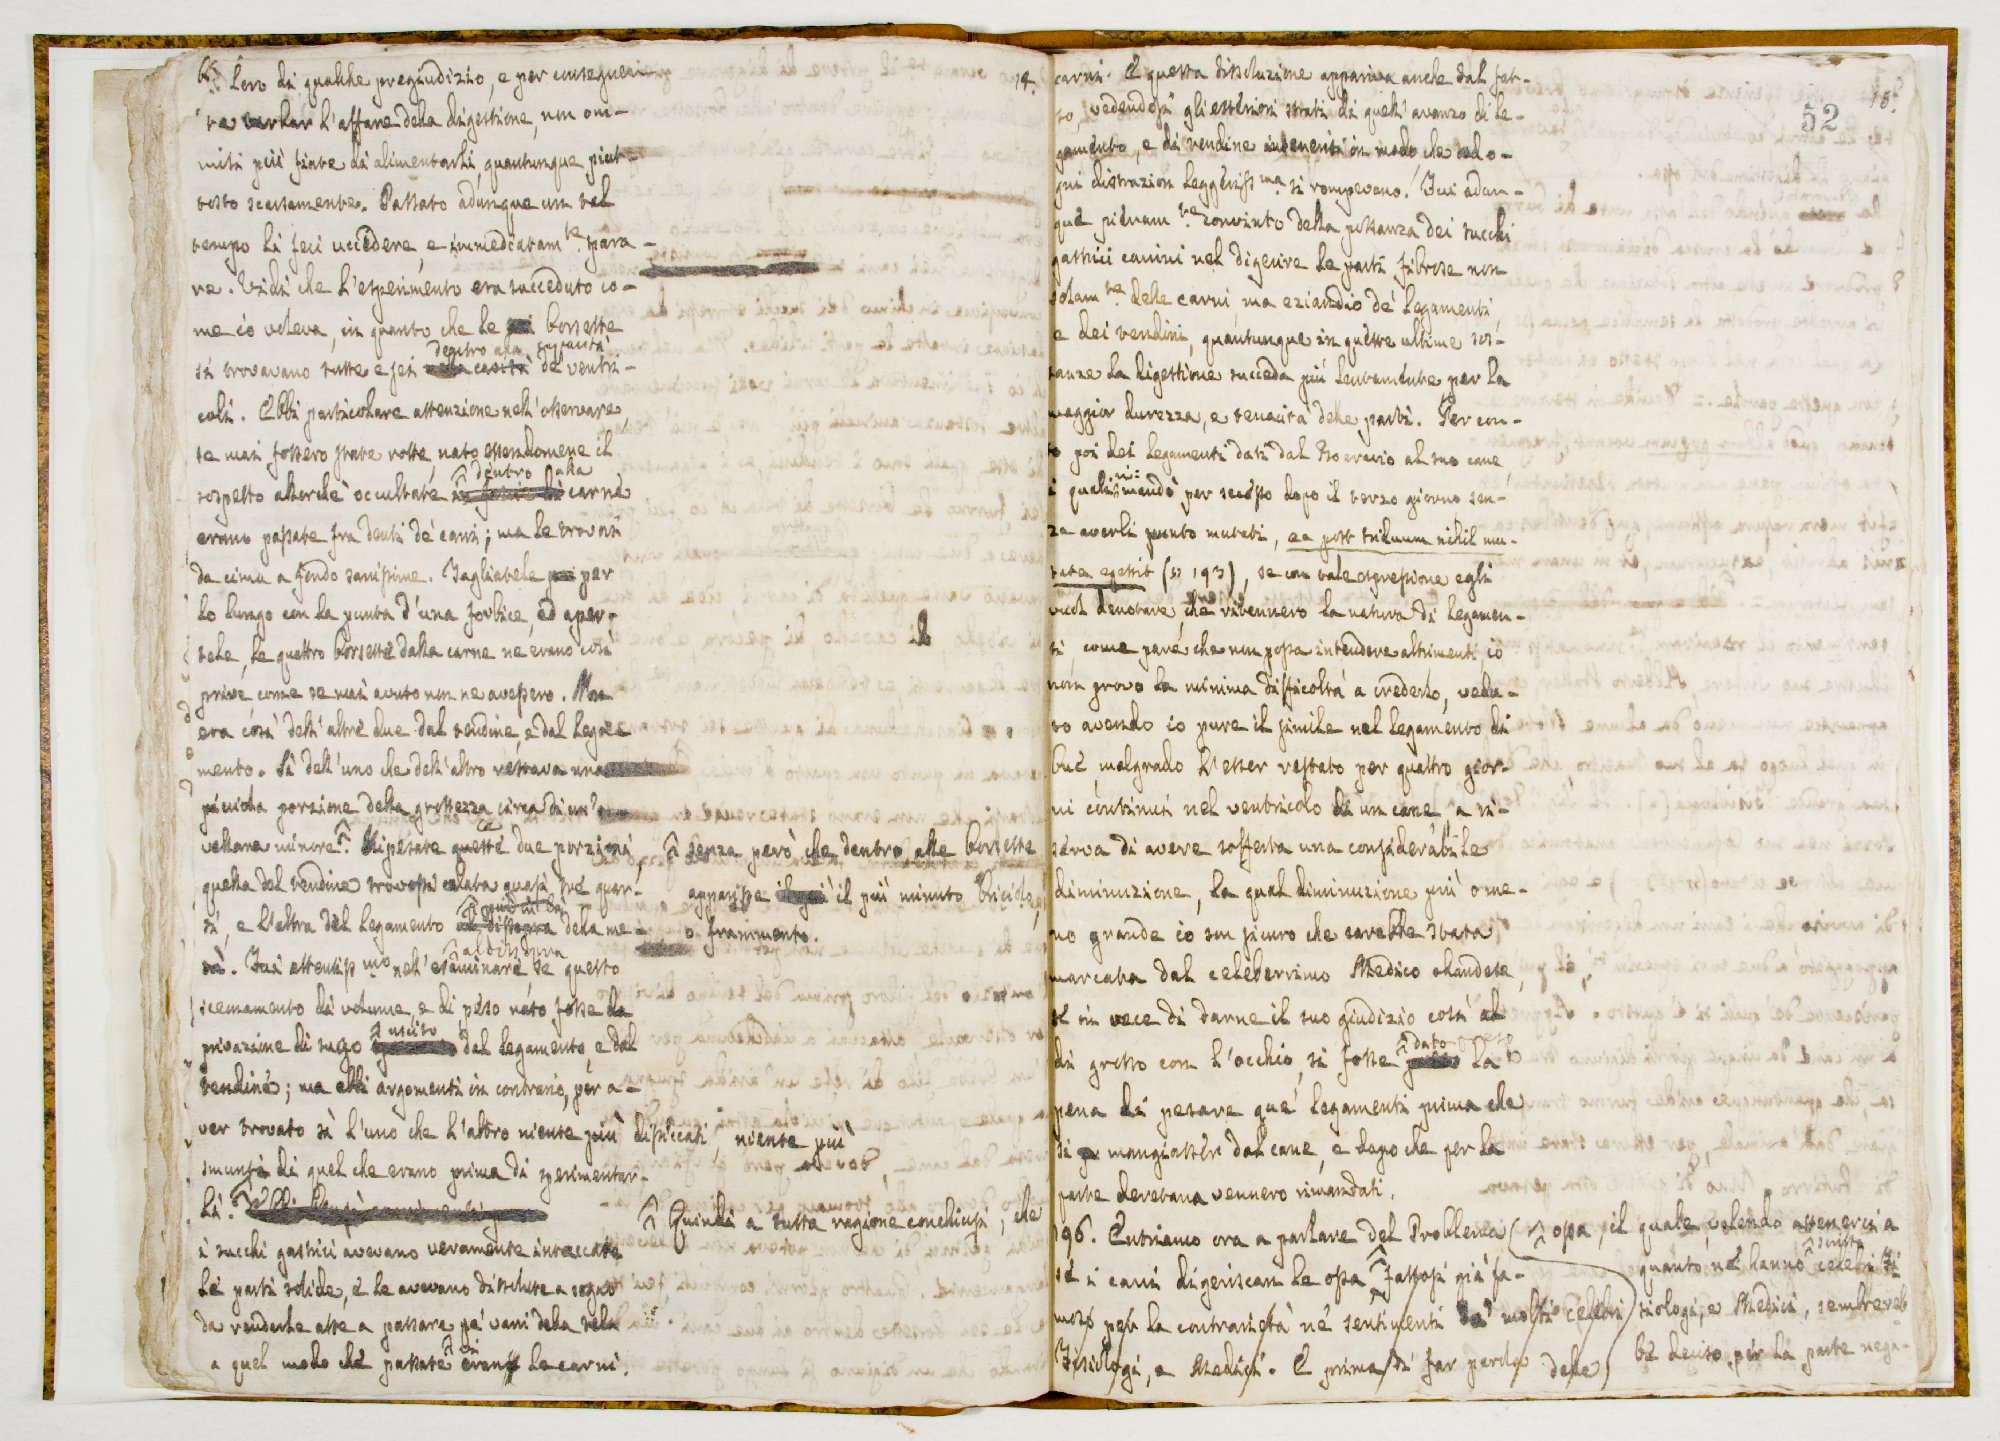 loro di qualche pregiudizio, e per consegueu-
te l'affare della digestione, non om-
misi più fiate di alimentarli, quantunque piut-
tosto scarsamente. Passato adunque un tal
tempo li feci uccidere, e immediatam.te spara-
re. Vidi che l'esperimento era succeduto co-
me io voleva, in quanto che le borsette
dentro alla
si trovavano tutte e sei cavità de' ventri-
coli. Ebbi particolare attenzione nell'osservare,
se mai fossero state rotte, nato essendomene il
dentro alla
sospetto allorché occultate carne
erano passate fra denti de' cani; ma le trovai
da cima a fondo sanissime. Tagliatele per
lo lungo con la punta d'una forbice, ed aper-
tele, le quattro borsette dalla carne ne erano così
prive, come se mai avuto non ne avessero. Non
era così dell'altre due dal tendine, e dal lega-
mento. Sì dell'uno che dell'altro restava una
picciola porzione della grossezza circa di un'a-
vellana minore. Ripesate queste due porzioni,
quella del tendine trovossi calata quasi tre quar-
ti, e l'altra del legamento della me-
al di su
tà. Fui attentiss.mo nell'esaminare se questo
scemamento di volume, e di peso nato fosse da
uscito
privazione di sugo dal legamento, e dal
tendine; ma ebbi argomenti in contrario, per a-
ver trovato sì l'uno che l'altro niente più dissiccati, niente più
smunti di quel che erano prima di sperimentar-
li.
i succhi gastrici avevano veramente intaccate
le parti solide, e le avevano disciolte a segno
da renderle atte a passare pe' vani della tela
a quel modo che passate erano le carni.
senza però che dentro alle borsette
apparisse il più minuto briciolo,
o frammento.
Quindi a tutta ragione conchiusi, che
18.
52
carni. E questa dissoluzione appariva anche dal fat-
to, vedendosi gli esteriori strati di quell'avanzo di le-
gamento, e di tendine inteneriti in modo che ad o-
gni distrazion leggeriss.ma si rompevano. Fui adun-
que pienam.te convinto della possanza dei succhi
gastrici canini nel digerire le parti fibrose non
solam.te delle carni, ma eziandio de' legamenti,
e dei tendini, quantunque in queste ultime sos-
tanze la digestione succeda più lentamente per la
maggior durezza, e tenacità delle parti. Per con-
to poi dei legamenti dati dal Boeravio al suo cane,
i quali rimandò per secesso dopo il terzo giorno sen-
za averli punto mutati, ea post triduum nihil mu-
tata egessit (n 193), se con tale espressione egli
vuol denotare, che ritennero la natura di legamen-
ti, come pare che non possa intendere altrimenti, io
non provo la minima difficoltà a crederlo, vedu-
to avendo io pure il simile nel legamento di
bue, malgrado l'esser restato per quattro gior-
ni continui nel ventricolo di un cane, a ri-
serva di avere sofferta una considerabile
diminuzione, la qual diminuzione più o me-
no grande io son sicuro che sarebbe stata
marcata dal celeberrimo Medico olandese,
se in vece di darne il suo giudizio così al
dato
di grosso con l'occhio, si fosse la
pena di pesare que' legamenti prima che
si mangiasser dal cane, e dopo che per la
parte deretana vennero rimandati.
196. Entriamo ora a parlare del Problema
se i cani digeriscan le ossa fattosi già fa-
moso per la contrarietà ne' sentimenti de' molti celebri
Fisiologi, e Medici. E prima di far parola delle
ossa, il quale, volendo attenerci a
scritto
quanto ne hanno celebri Fi-
siologi, e Medici, sembrereb-
be deciso per la parte nega-